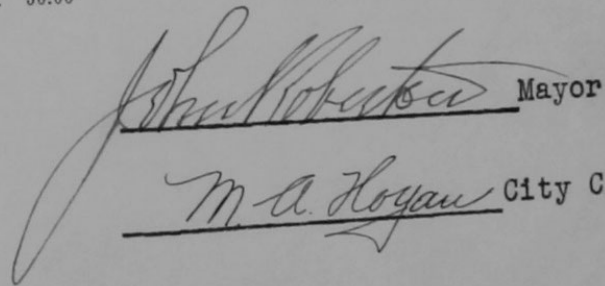 John Roberton Mayor
M. A. Hogan City C